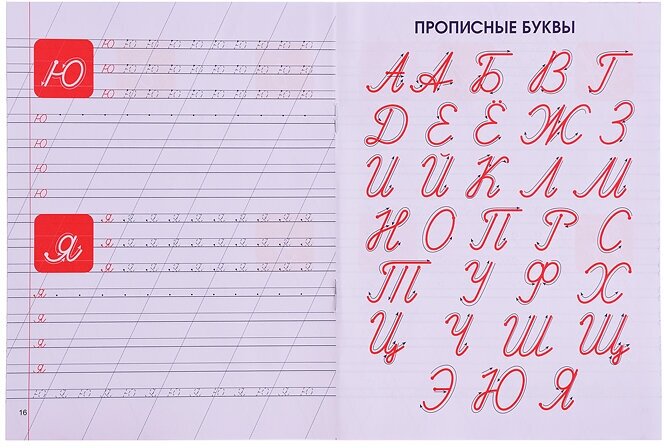 Ю
Ю Ю Ю Ю Ю Ю Ю Ю Ю Ю Ю
Ю Ю Ю Ю Ю Ю Ю Ю Ю Ю Ю
Ю Ю Ю Ю Ю Ю Ю Ю Ю Ю Ю
Ю
Ю
Ю
Ю
Я
Я Я Я Я Я Я Я Я Я Я Я
Я Я Я Я Я Я Я Я Я Я Я
Я Я Я Я Я Я Я Я Я Я Я
Я
Я
Я
Я
Ю Я Ю Я Ю Я Ю Я Ю Я Ю Я Ю Я
16
ПРОПИСНЫЕ БУКВЫ
А А Б В Г
Д Е Ё Ж З
И Й К Л М
Н О П Р С
Т У Ф Х
Ц Ч Ш Щ
Э Ю Я